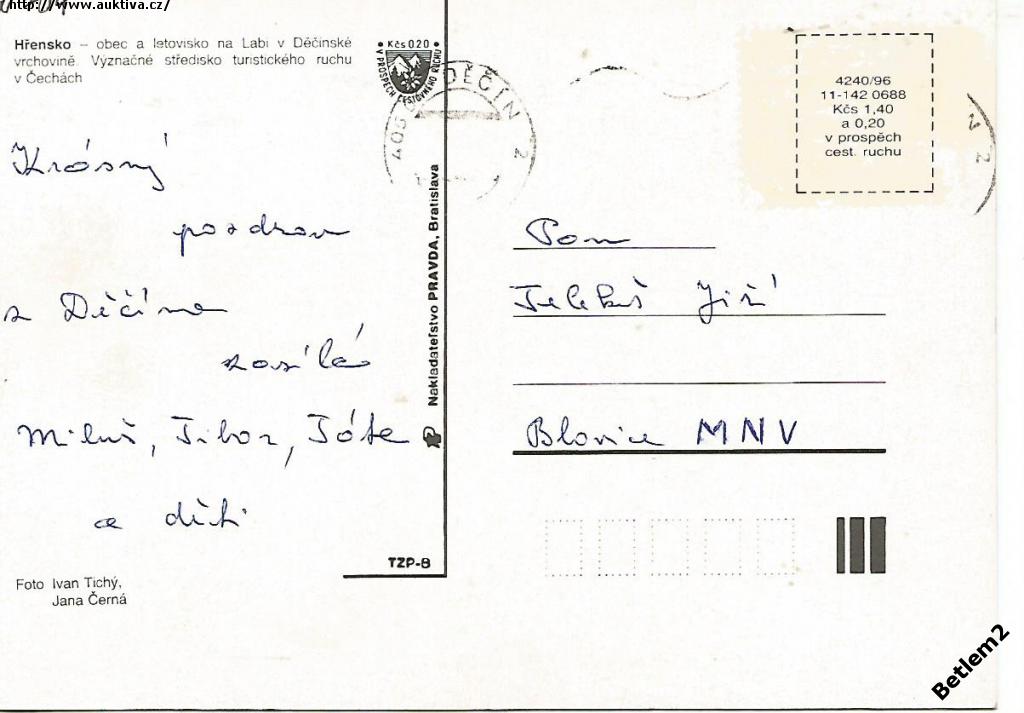 http://www.auktiva.cz/
Hřensko – obec a letovisko na Labi v Děčínské
vrchovině. Význačné středisko turistického ruchu
v Čechách
Kčs 0.20
V PROSPĚCH CESTOVNÍHO RUCHU
DĚČÍN 2
4240/96
11-142 0688
Kčs 1,40
a 0,20
v prospěch
cest. ruchu
N 2
Krásný
pozdrav
z Děčína
zasílá
Miluš, Tibor,
a děti
Nakladateľstvo PRAVDA, Bratislava
TZP-B
Foto Ivan Tichý,
Jana Černá
Pan
Jiří
Blovice MNV
Betlem2